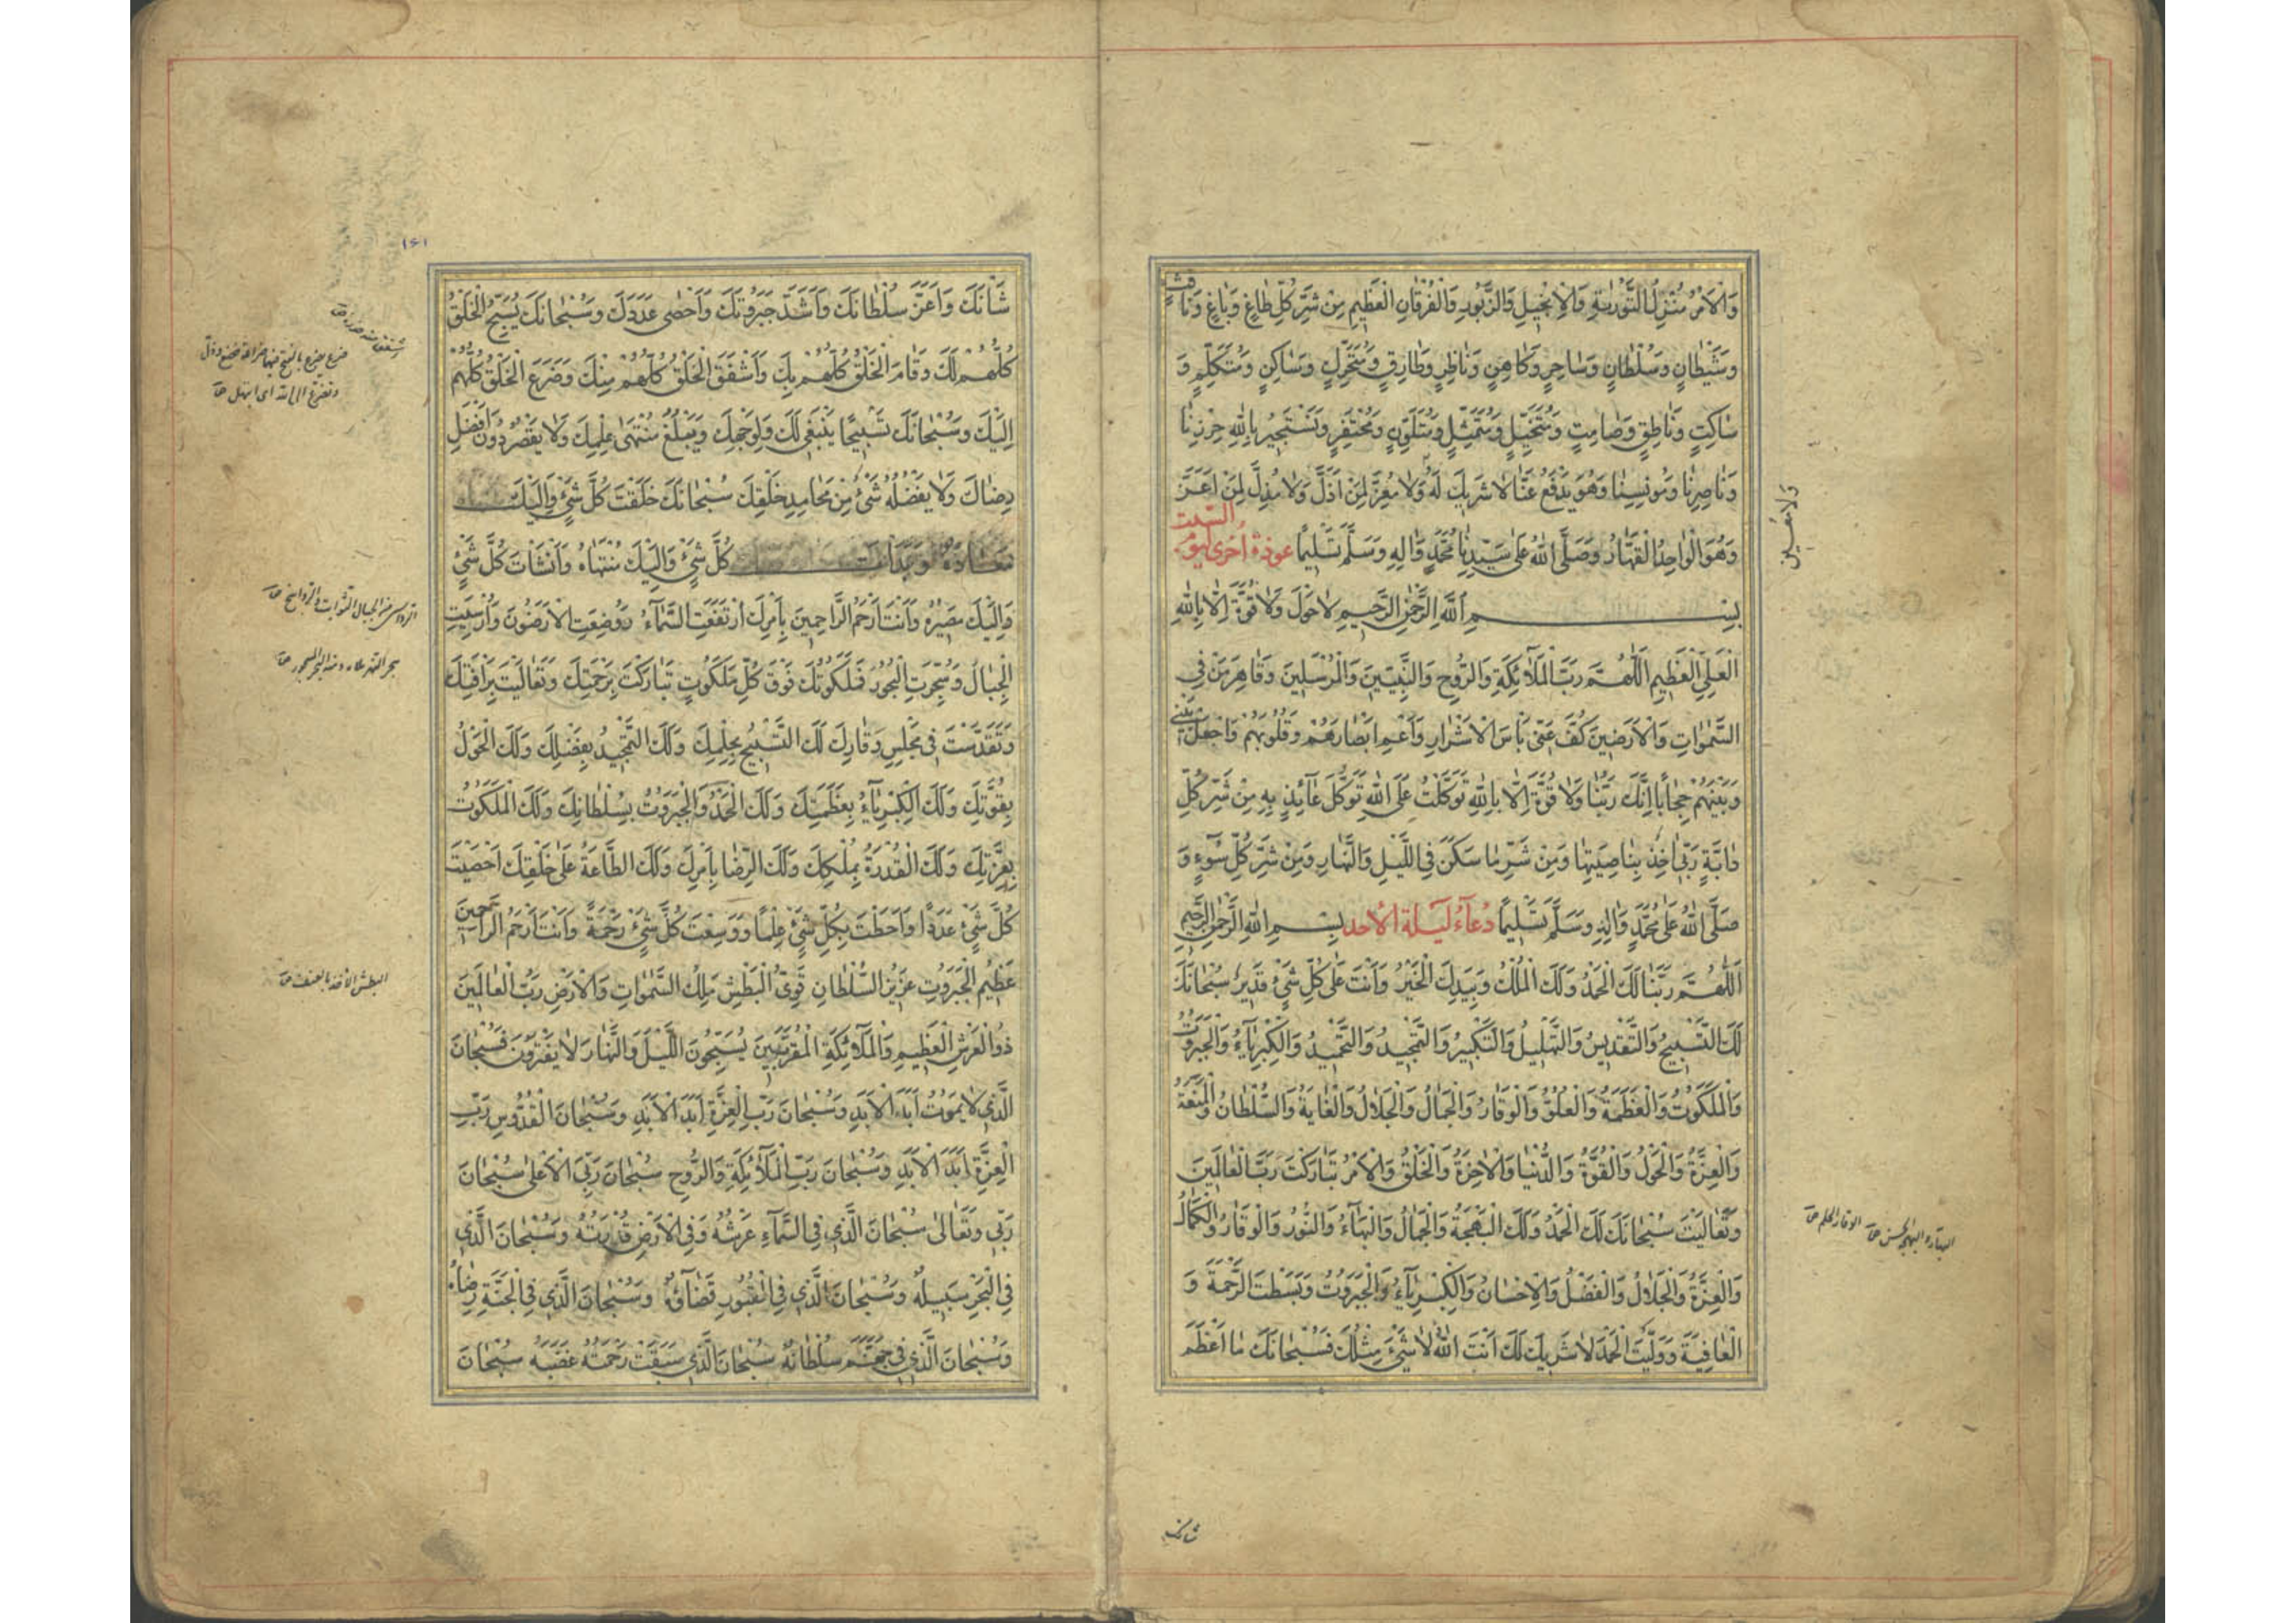 وَالْاَمْرُ مُنْزِلُ التَّوْرٰيةِ وَالْاِنْجِيلِ وَالزَّبُورِ وَالْفُرْقَانِ الْعَظِيمِ مِنْ شَرِّ كُلِّ طَاغٍ وَبَاغٍ وَنَافِثٍ
وَشَيْطَانٍ وَسُلْطَانٍ وَسَاحِرٍ وَكَاهِنٍ وَنَاظِرٍ وَطَارِقٍ وَمُتَحَرِّكٍ وَسَاكِنٍ وَمُتَكَلِّمٍ وَ
سَاكِتٍ وَنَاطِقٍ وَصَامِتٍ وَمُتَخَيِّلٍ وَمُتَمَثِّلٍ وَمُتَلَوِّنٍ وَمُحْتَفِرٍ وَنَسْتَجِيرُ بِاللّٰهِ حِرْزِنَا
وَنَاصِرِنَا وَمُونِسِنَا وَهُوَ يَدْفَعُ عَنَّا لَا شَرِيكَ لَهُ وَلَا مُعِزَّ لِمَنْ اَذَلَّ وَلَا مُذِلَّ لِمَنْ اَعَزَّ
وَهُوَ الْوَاحِدُ الْقَهَّارُ وَصَلَّى اللّٰهُ عَلٰى سَيِّدِنَا مُحَمَّدٍ وَاٰلِهِ وَسَلَّمَ تَسْلِيمًا عوذة اُخرى ليوم السّبت
بِسْمِ اللّٰهِ الرَّحْمٰنِ الرَّحِيمِ لَا حَوْلَ وَلَا قُوَّةَ اِلَّا بِاللّٰهِ
الْعَلِيِّ الْعَظِيمِ اَللّٰهُمَّ رَبَّ الْمَلَآئِكَةِ وَالرُّوحِ وَالنَّبِيِّينَ وَالْمُرْسَلِينَ وَقَاهِرَ مَنْ فِي
السَّمٰوَاتِ وَالْاَرَضِينَ كُفَّ عَنِّي بَأْسَ الْاَشْرَارِ وَاَعْمِ اَبْصَارَهُمْ وَقُلُوبَهُمْ وَاجْعَلْ بَيْنِي
وَبَيْنَهُمْ حِجَابًا اِنَّكَ رَبُّنَا وَلَا قُوَّةَ اِلَّا بِاللّٰهِ تَوَكَّلْتُ عَلَى اللّٰهِ تَوَكُّلَ عَآئِذٍ بِهِ مِنْ شَرِّ كُلِّ
دَابَّةٍ رَبِّي اٰخِذٌ بِنَاصِيَتِهَا وَمِنْ شَرِّ مَا سَكَنَ فِي اللَّيْلِ وَالنَّهَارِ وَمِنْ شَرِّ كُلِّ سُوٓءٍ وَ
صَلَّى اللّٰهُ عَلٰى مُحَمَّدٍ وَاٰلِهِ وَسَلَّمَ تَسْلِيمًا دُعآءُ لَيلة الاحد بِسْمِ اللّٰهِ الرَّحْمٰنِ الرَّحِيمِ
اَللّٰهُمَّ رَبَّنَا لَكَ الْحَمْدُ وَلَكَ الْمُلْكُ وَبِيَدِكَ الْخَيْرُ وَاَنْتَ عَلٰى كُلِّ شَيْءٍ قَدِيرٌ سُبْحَانَكَ
لَكَ التَّسْبِيحُ وَالتَّقْدِيسُ وَالتَّهْلِيلُ وَالتَّكْبِيرُ وَالتَّمْجِيدُ وَالتَّحْمِيدُ وَالْكِبْرِيَآءُ وَالْجَبَرُوتُ
وَالْمَلَكُوتُ وَالْعَظَمَةُ وَالْعُلُوُّ وَالْوَقَارُ وَالْجَمَالُ وَالْجَلَالُ وَالْغَايَةُ وَالسُّلْطَانُ وَالْمَنَعَةُ
وَالْعِزَّةُ وَالْحَوْلُ وَالْقُوَّةُ وَالدُّنْيَا وَالْاٰخِرَةُ وَالْخَلْقُ وَالْاَمْرُ تَبَارَكْتَ رَبَّ الْعَالَمِينَ
وَتَعَالَيْتَ سُبْحَانَكَ لَكَ الْحَمْدُ وَلَكَ الْبَهْجَةُ وَالْجَمَالُ وَالْبَهَآءُ وَالنُّورُ وَالْوَقَارُ وَالْكَمَالُ
وَالْعِزَّةُ وَالْجَلَالُ وَالْفَضْلُ وَالْاِحْسَانُ وَالْكِبْرِيَآءُ وَالْجَبَرُوتُ وَبَسَطْتَ الرَّحْمَةَ وَ
الْعَافِيَةَ وَوَلَّيْتَ الْحَمْدَ لَا شَرِيكَ لَكَ اَنْتَ اللّٰهُ لَا شَيْءَ مِثْلُكَ فَسُبْحَانَكَ مَا اَعْظَمَ
شانك
١٦١
شَأْنَكَ وَاَعَزَّ سُلْطَانَكَ وَاَشَدَّ جَبَرُوتَكَ وَاَحْصٰى عَدَدَكَ وَسُبْحَانَكَ يُسَبِّحُ الْخَلْقُ
كُلُّهُمْ لَكَ وَقَامَ الْخَلْقُ كُلُّهُمْ بِكَ وَاَشْفَقَ الْخَلْقُ كُلُّهُمْ مِنْكَ وَضَرَعَ الْخَلْقُ كُلُّهُمْ
اِلَيْكَ وَسُبْحَانَكَ تَسْبِيحًا يَنْبَغِي لَكَ وَلِوَجْهِكَ وَيَبْلُغُ مُنْتَهٰى عِلْمِكَ وَلَا يَقْصُرُ دُونَ اَفْضَلِ
رِضَاكَ وَلَا يَفْضُلُهُ شَيْءٌ مِنْ مَحَامِدِ خَلْقِكَ سُبْحَانَكَ خَلَقْتَ كُلَّ شَيْءٍ وَاِلَيْكَ
مَعَادُهُ وَبَدَأْتَ كُلَّ شَيْءٍ وَاِلَيْكَ مُنْتَهَاهُ وَاَنْشَأْتَ كُلَّ شَيْءٍ
وَاِلَيْكَ مَصِيرُهُ وَاَنْتَ اَرْحَمُ الرَّاحِمِينَ بِاَمْرِكَ ارْتَفَعَتِ السَّمَآءُ وَوُضِعَتِ الْاَرَضُونَ وَاُرْسِيَتِ
الْجِبَالُ وَسُجِّرَتِ الْبُحُورُ فَمَلَكُوتُكَ فَوْقَ كُلِّ مَلَكُوتٍ تَبَارَكْتَ بِرَحْمَتِكَ وَتَعَالَيْتَ بِرَأْفَتِكَ
وَتَقَدَّسْتَ فِي مَجْلِسِ وَقَارِكَ لَكَ التَّسْبِيحُ بِحِلْمِكَ وَلَكَ التَّمْجِيدُ بِفَضْلِكَ وَلَكَ الْحَوْلُ
بِقُوَّتِكَ وَلَكَ الْكِبْرِيَآءُ بِعَظَمَتِكَ وَلَكَ الْحَمْدُ وَالْجَبَرُوتُ بِسُلْطَانِكَ وَلَكَ الْمَلَكُوتُ
بِعِزَّتِكَ وَلَكَ الْقُدْرَةُ بِمُلْكِكَ وَلَكَ الرِّضَا بِاَمْرِكَ وَلَكَ الطَّاعَةُ عَلٰى خَلْقِكَ اَحْصَيْتَ
كُلَّ شَيْءٍ عَدَدًا وَاَحَطْتَ بِكُلِّ شَيْءٍ عِلْمًا وَوَسِعْتَ كُلَّ شَيْءٍ رَحْمَةً وَاَنْتَ اَرْحَمُ الرَّاحِمِينَ
عَظِيمُ الْجَبَرُوتِ عَزِيزُ السُّلْطَانِ قَوِيُّ الْبَطْشِ مَلِكُ السَّمٰوَاتِ وَالْاَرْضِ رَبُّ الْعَالَمِينَ
ذُو الْعَرْشِ الْعَظِيمِ وَالْمَلَآئِكَةِ الْمُقَرَّبِينَ يُسَبِّحُونَ اللَّيْلَ وَالنَّهَارَ لَا يَفْتُرُونَ فَسُبْحَانَ
الَّذِي لَا يَمُوتُ اَبَدَ الْاَبَدِ وَسُبْحَانَ رَبِّ الْعِزَّةِ اَبَدَ الْاَبَدِ وَسُبْحَانَ الْقُدُّوسِ رَبِّ
الْعِزَّةِ اَبَدَ الْاَبَدِ وَسُبْحَانَ رَبِّ الْمَلَآئِكَةِ وَالرُّوحِ سُبْحَانَ رَبِّيَ الْاَعْلٰى سُبْحَانَ
رَبِّي وَتَعَالٰى سُبْحَانَ الَّذِي فِي السَّمَآءِ عَرْشُهُ وَفِي الْاَرْضِ قُدْرَتُهُ وَسُبْحَانَ الَّذِي
فِي الْبَحْرِ سَبِيلُهُ وَسُبْحَانَ الَّذِي فِي الْقُبُورِ قَضَآؤُهُ وَسُبْحَانَ الَّذِي فِي الْجَنَّةِ رِضَاهُ
وَسُبْحَانَ الَّذِي فِي جَهَنَّمَ سُلْطَانُهُ سُبْحَانَ الَّذِي سَبَقَتْ رَحْمَتُهُ غَضَبَهُ سُبْحَانَ